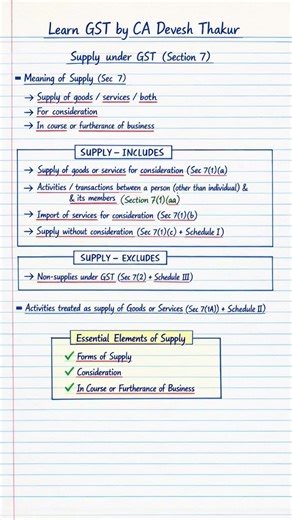 Learn GST by CA Devesh Thakur
Supply under GST (Section 7)
Meaning of Supply (Sec 7)
→ Supply of goods / services / both
→ For consideration
→ In course or furtherance of business
SUPPLY – INCLUDES
→ Supply of goods or services for consideration (Sec 7(1)(a)
→ Activities / transactions between a person (other than individual) &
& its members (Section 7(1)(aa)
→ Import of services for consideration (Sec 7(1)(b)
→ Supply without consideration (Sec 7(1)(c) + Schedule I)
SUPPLY – EXCLUDES
→ Non-supplies under GST (Sec 7(2) + Schedule III)
Activities treated as supply of Goods or Services (Sec 7(1A)) + Schedule II)
Essential Elements of Supply
✓ Forms of Supply
✓ Consideration
✓ In Course or Furtherance of Business